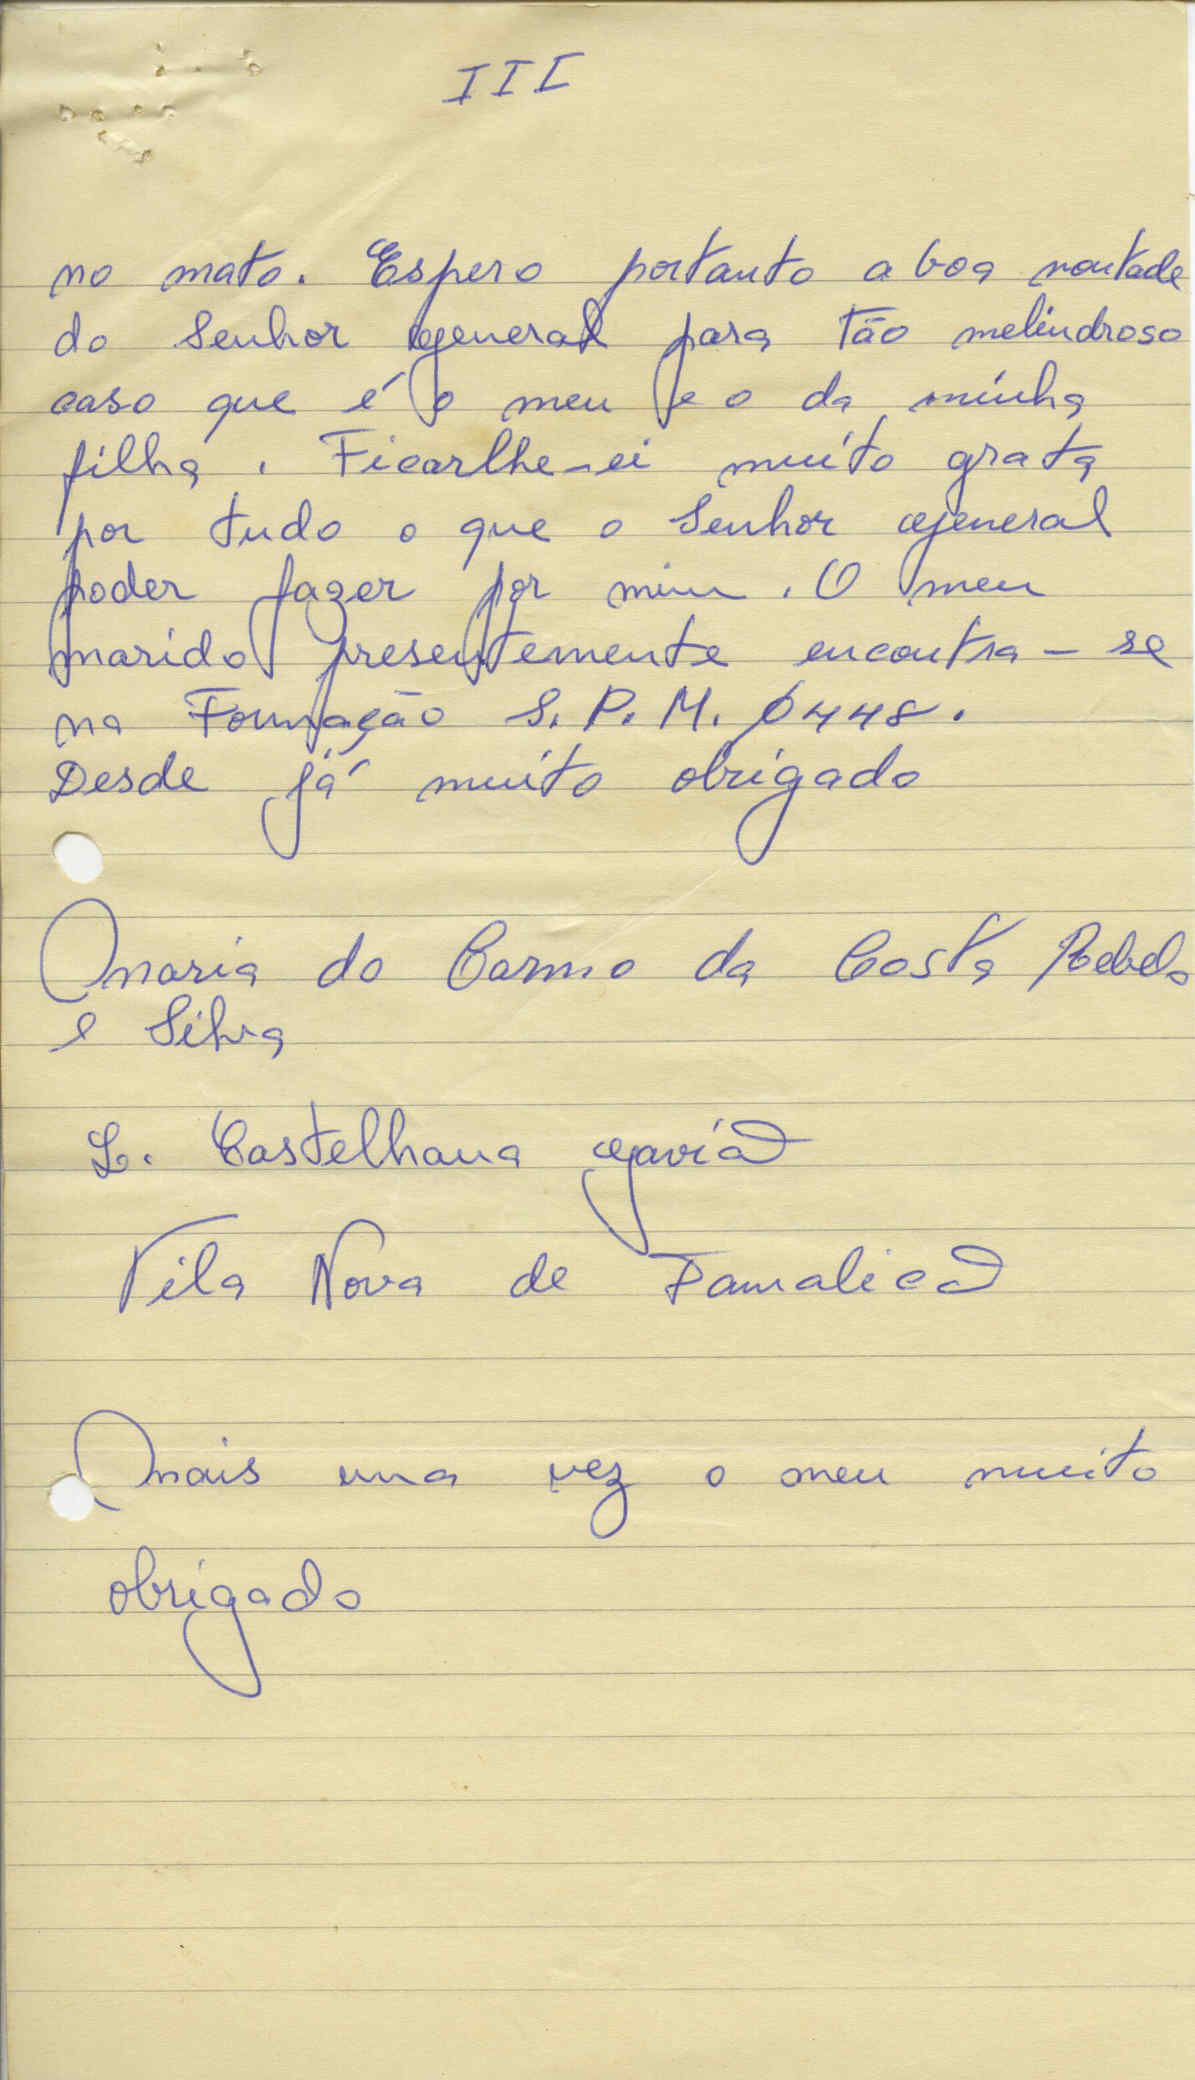 III
no mato. Espero portanto a boa vontade
do Senhor general para tão melindroso
caso que é o meu e o da minha
filha. Ficarlhe-ei muito grata
por tudo o que o Senhor general
poder fazer por mim. O meu
marido presentemente encontra-se
na Formação S.P.M. 0448.
Desde já muito obrigado
Maria do Carmo da Costa Rebelo
e Silva
L. Castelhana Gavião
Vila Nova de Famalicão
Mais uma vez o meu muito
obrigado